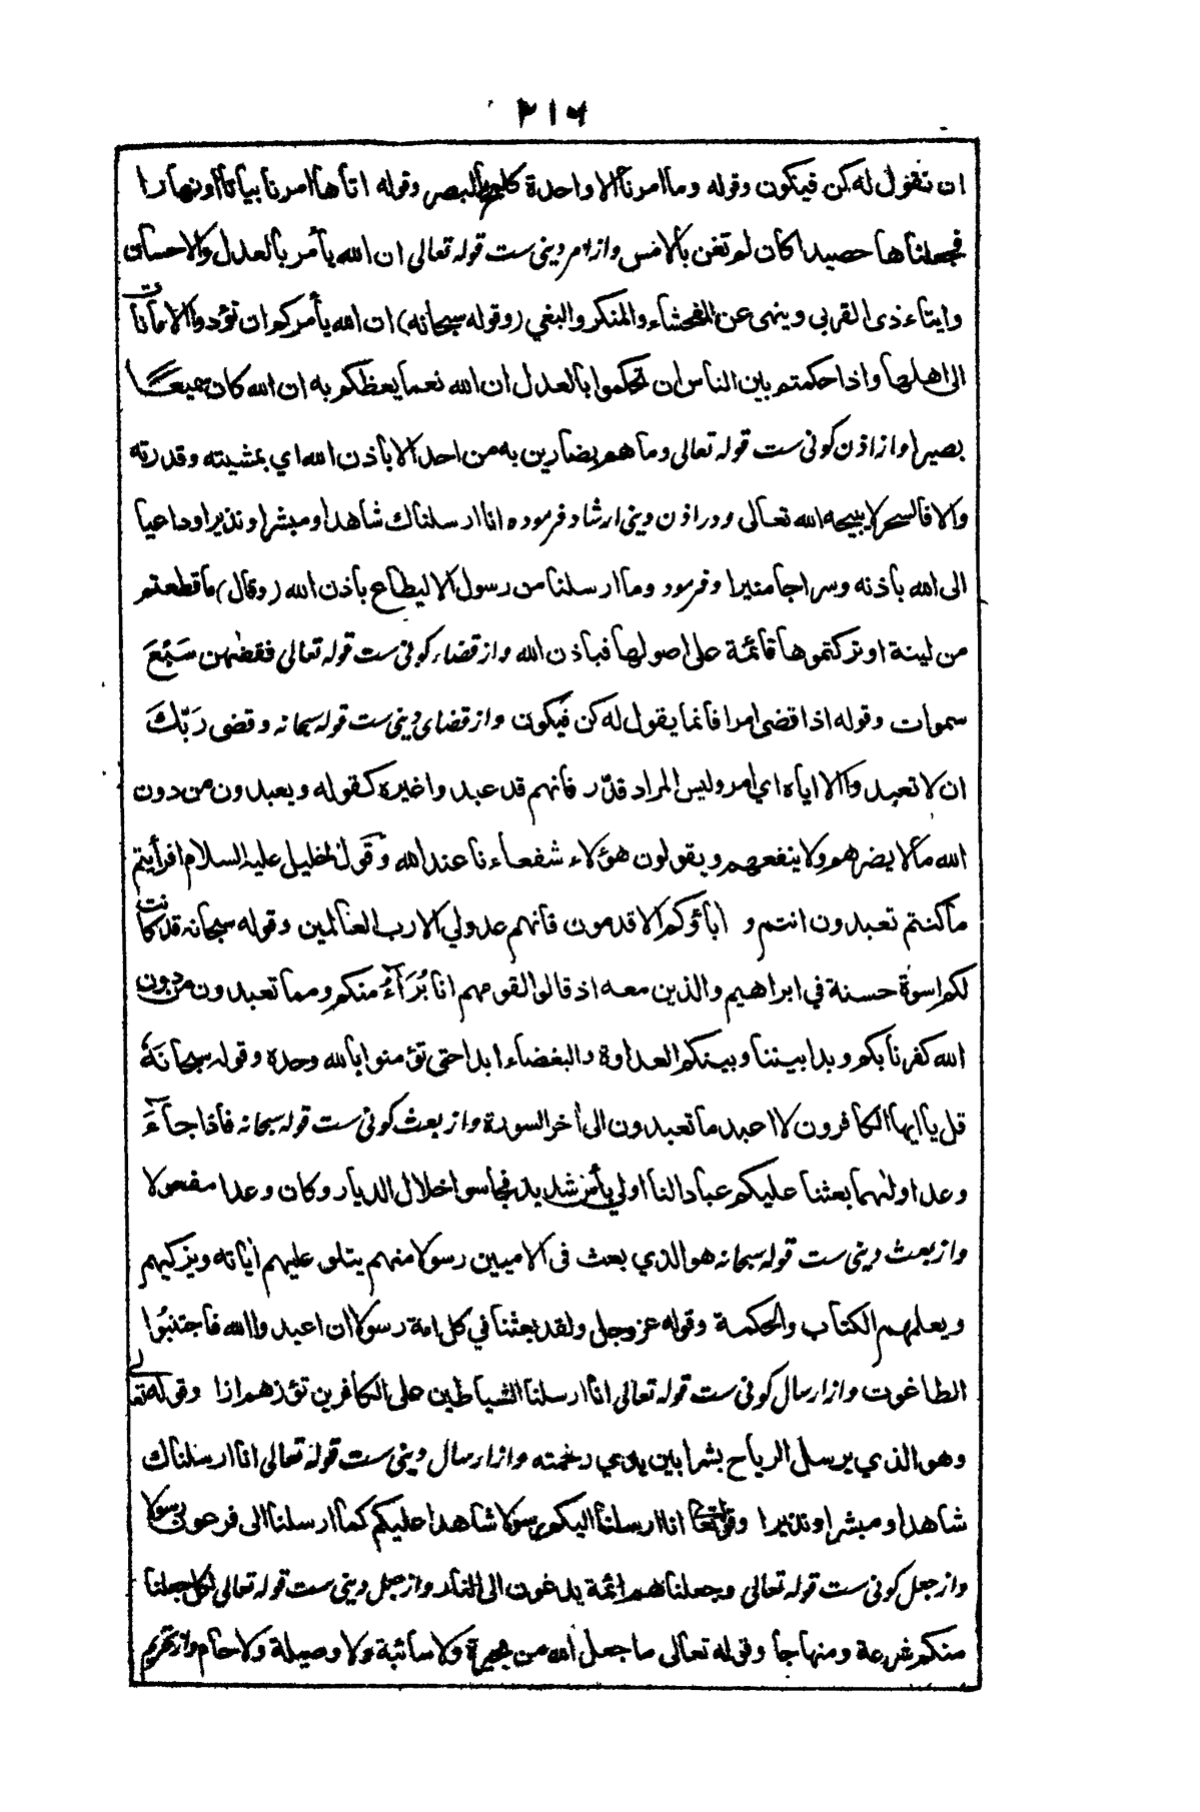 ٢١٦
ان نقول له كن فيكون وقوله وما امرنا الا واحدة كلمح بالبصر وقوله اتاها امرنا بياتا او نهارا
فجعلناها حصيدا كان لم تغن بالامس واز امر ديني ست قوله تعالى ان الله يأمر بالعدل والاحسان
وايتاء ذى القربى وينهى عن الفحشاء والمنكر والبغي (وقوله سبحانه) ان الله يأمركم ان تؤدوا الامانات
الى اهلها واذا حكمتم بين الناس ان تحكموا بالعدل ان الله نعما يعظكم به ان الله كان سميعًا
بصيرا واز اذن كونى ست قوله تعالى وما هم بضارين به من احد الا باذن الله اي بمشيته وقدرته
والا فالسحر لا يبيحه الله تعالى ودر اذن ديني ارشاد فرموده انا ارسلناك شاهدا ومبشرا ونذيرا وداعيا
الى الله باذنه وسراجا منيرا وفرمود وما ارسلنا من رسول الا ليطاع باذن الله (وقال) ما قطعتم
من لينة او تركتموها قائمة على اصولها فباذن الله واز قضاء كونى ست قوله تعالى فقضٰهن سَبْعَ
سموات وقوله اذا قضى امرا فانما يقول له كن فيكون واز قضاى دينى ست قوله سبحانه وقضى رَبّكَ
ان لا تعبدوا الا اياه اي امر وليس المراد قدّر فانهم قد عبدوا غيره كقوله ويعبدون من دون
الله ما لا يضرهم ولا ينفعهم ويقولون هؤلاء شفعاءنا عند الله وقول الخليل عليه السلام افرأيتم
ما كنتم تعبدون انتم و اباؤكم الاقدمون فانهم عدولي الا رب العالمين وقوله سبحانه قد كانت
لكم اسوة حسنة في ابراهيم والذين معه اذ قالوا لقومهم انا بُرَآءُ منكم ومما تعبدون من دون
الله كفرنا بكم وبدا بيننا وبينكم العداوة والبغضاء ابدا حتى تؤمنوا بالله وحده وقوله سبحانَهُ
قل يا ايها الكافرون لا اعبد ما تعبدون الى أخر السورة واز بعث كونى ست قوله سبحانه فاذا جآءَ
وعد اولهما بعثنا عليكم عبادا لنا اولي بأس شديد فجاسوا خلال الديار وكان وعدا مفعولا
واز بعث دينى ست قوله سبحانه هو الذي بعث فى الاميين رسولا منهم يتلو عليهم اٰياته ويزكيهم
ويعلمهم الكتاب والحكمة وقوله عز وجل ولقد بعثنا في كل امة رسولا ان اعبدوا الله فاجتنبُوا
الطاغوت واز ارسال كونى ست قوله تعالى انا ارسلنا الشياطين على الكافرين تؤزهم ازا وقوله تعالى
وهو الذي يرسل الرياح بشرا بين يدي رحمته واز ارسال دينى ست قوله تعالى انا ارسلناك
شاهدا ومبشرا ونذيرا وقوله تعالى انا ارسلنا اليكم رسولا شاهدا عليكم كما ارسلنا الى فرعون رسولا
واز جعل كونى ست قوله تعالى وجعلناهم ائمة يدعون الى النار واز جعل دينى ست قوله تعالى لكل جعلنا
منكم شرعة ومنهاجا وقوله تعالى ما جعل الله من بحيرة ولا سائبة ولا وصيلة ولا حام واز تحريم